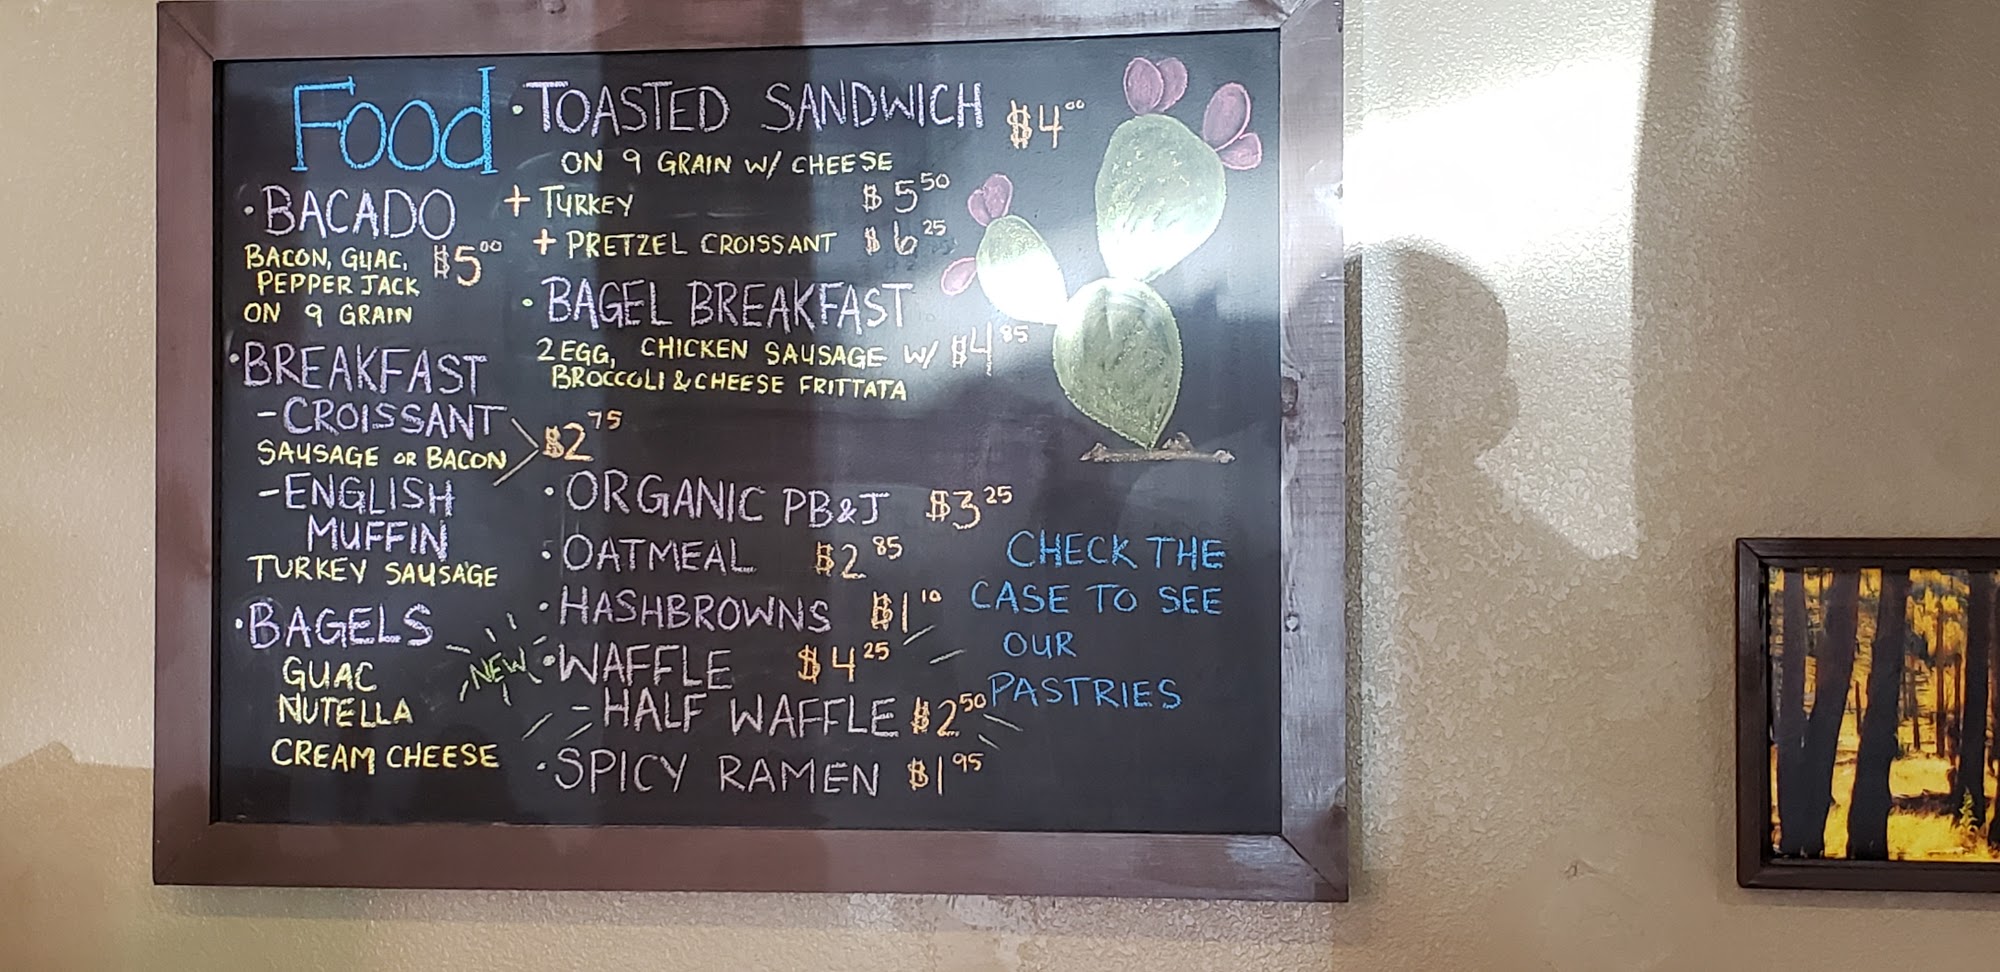 Food
• BACADO
BACON, GUAC, $5.00
PEPPER JACK
ON 9 GRAIN
• BREAKFAST
- CROISSANT
SAUSAGE OR BACON
$2.75
- ENGLISH
MUFFIN
TURKEY SAUSAGE
• BAGELS
GUAC
NUTELLA
CREAM CHEESE
• TOASTED SANDWICH $4.00
ON 9 GRAIN W/ CHEESE
+ TURKEY $5.50
+ PRETZEL CROISSANT $6.25
• BAGEL BREAKFAST
2 EGG, CHICKEN SAUSAGE W/ $4.85
BROCCOLI & CHEESE FRITTATA
• ORGANIC PB&J $3.25
• OATMEAL $2.85
• HASHBROWNS $1.10
NEW • WAFFLE $4.25
- HALF WAFFLE $2.50
• SPICY RAMEN $1.95
CHECK THE
CASE TO SEE
OUR
PASTRIES